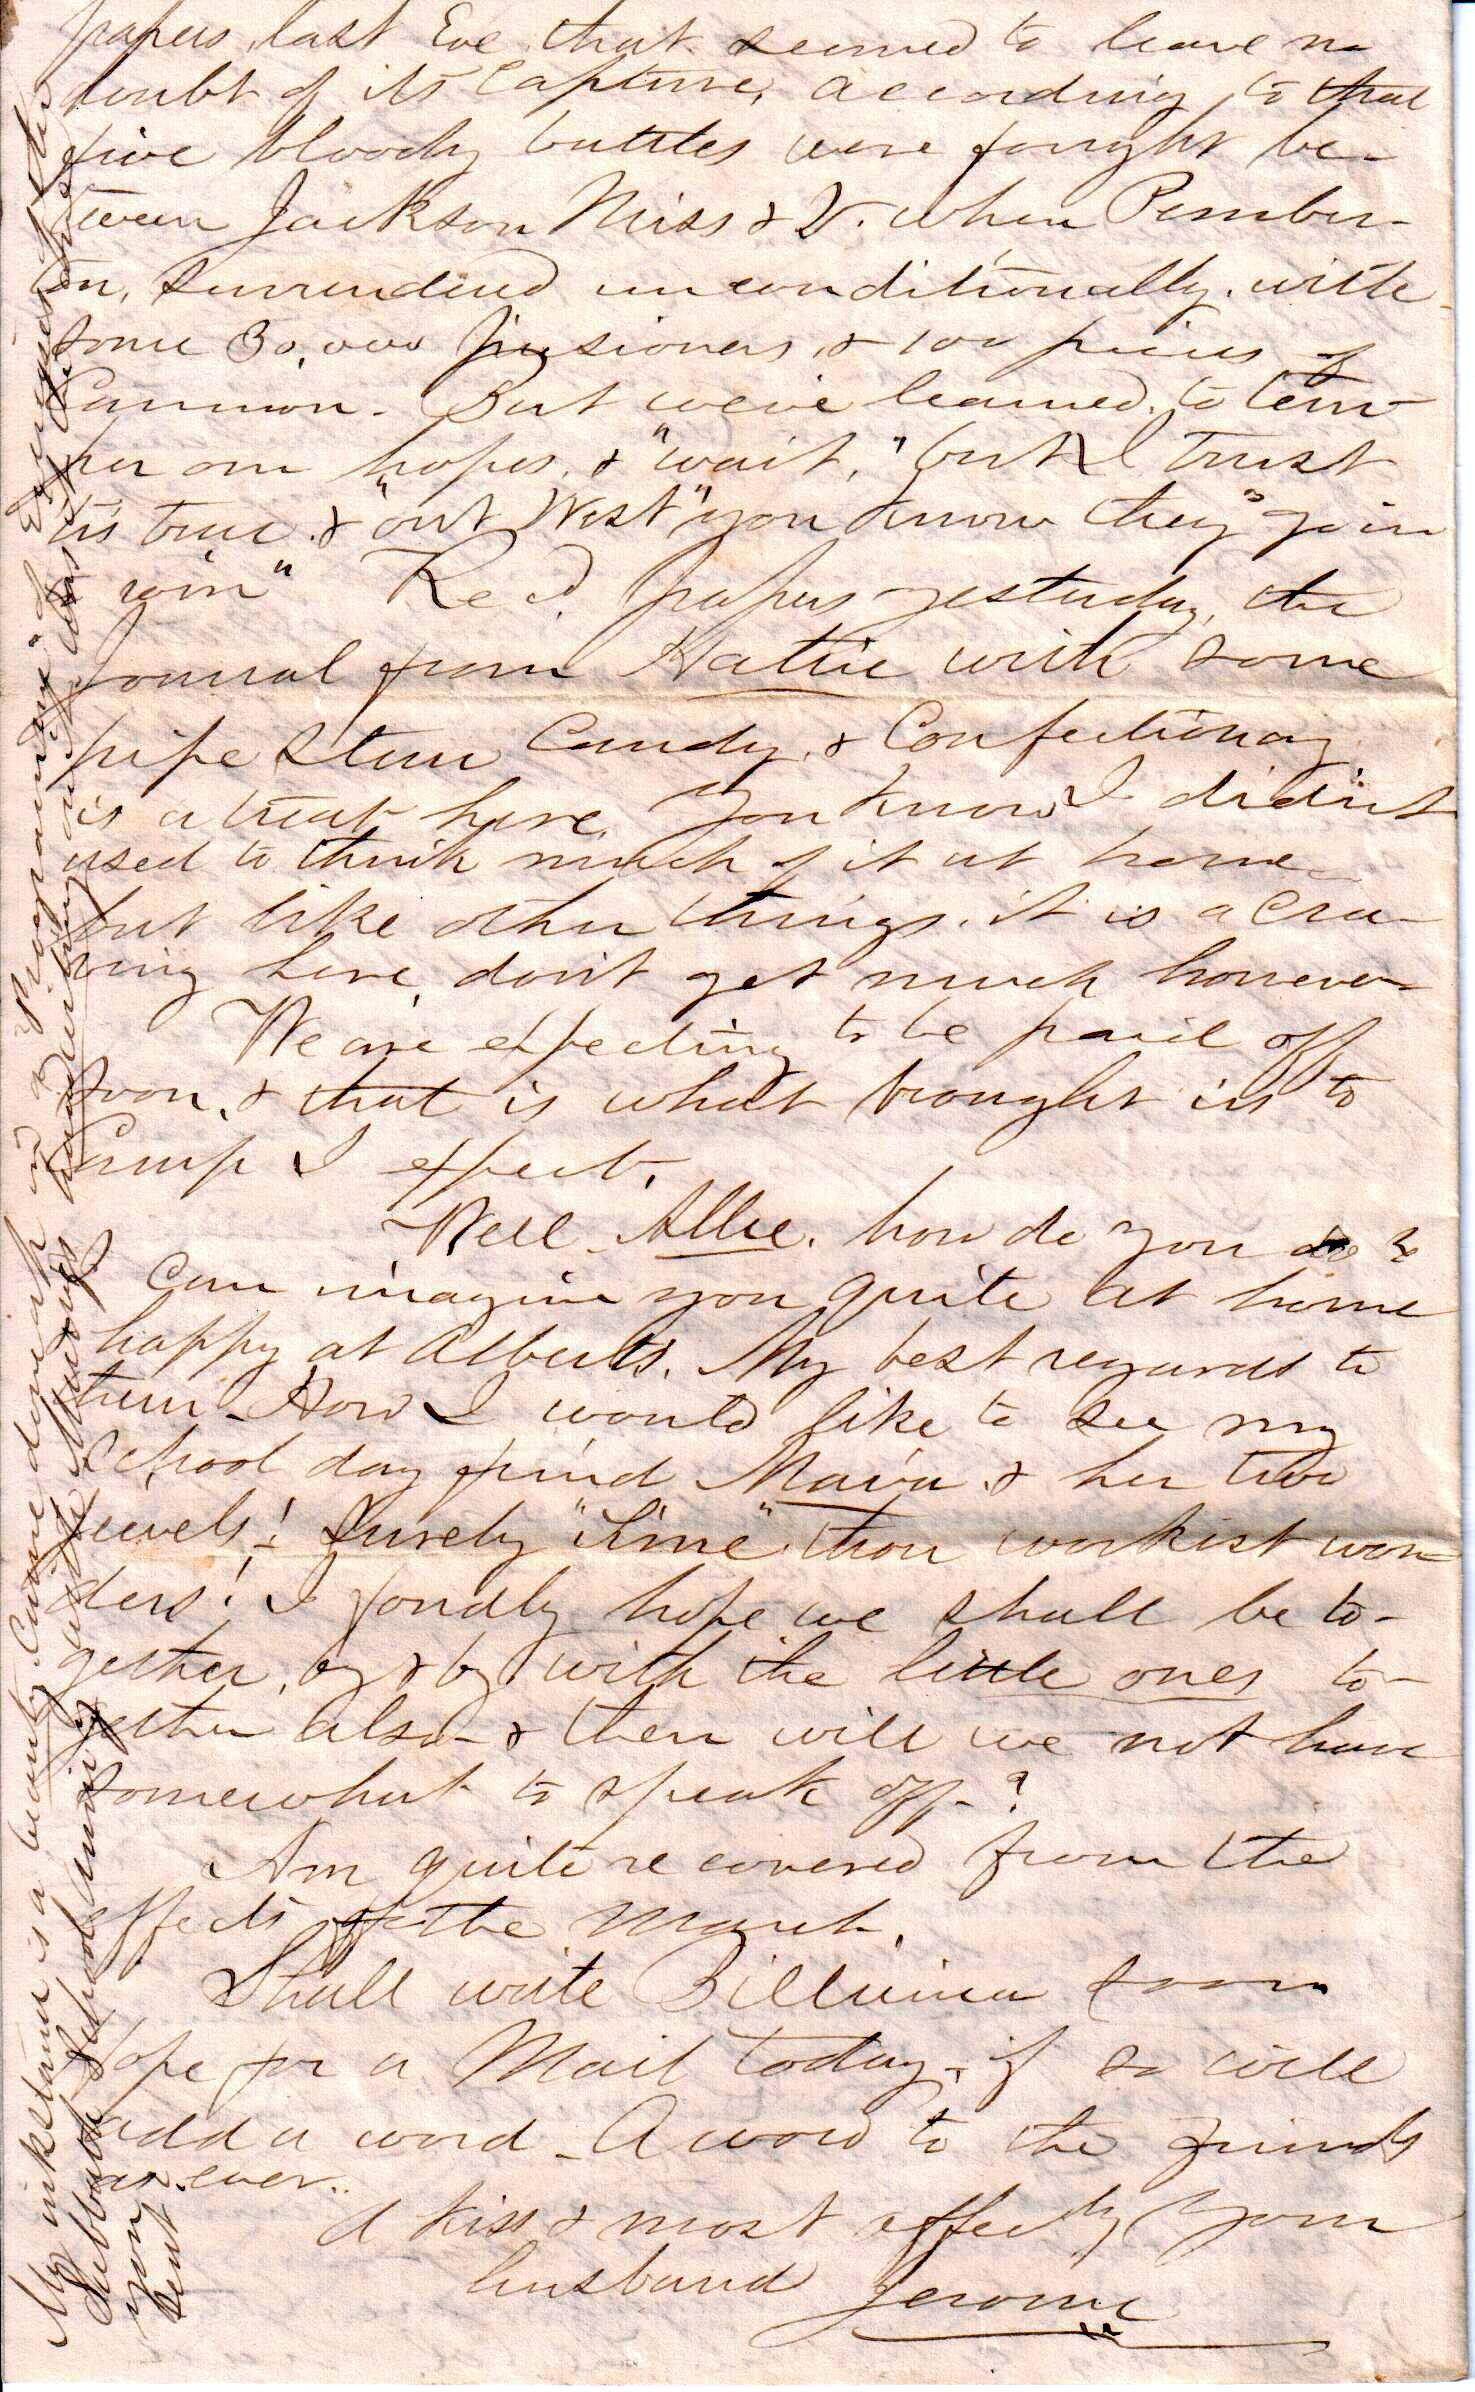 papers, last Eve. that seemed to leave no
doubt of its Capture, according to that
five bloody battles were fought be-
tween Jackson Miss & V. when Pember-
ton, surrendered unconditionally, with
some 30,000 prisioners, & 100 pieces of
Cannon - But we've learned, to tem-
per our hopes, & "wait," but I trust
tis true. & "out West" you know they "go in
to win" Rec'd. papers yesterday, the
Journal from Hattie with some
pipe stem Candy, & Confectionay
is a treat here, you know I didn't
used to think much of it at home
but like other things, it is a cra-
ving here, don't get much however -
We are expecting to be paid off
soon, & that is what brought us to
Camp I expect.
Well Allie, how do you do?
Can imagine you quite at home
happy at Alberts. My best regards to
them - How I would like to see my
school day frind Maria & her two
jewels! Surely "time" thou workist won-
ders! I fondly hope we shall be to-
gether, by & by with the little ones to-
gether also - & then will we not have
somewhat to speak off - ?
Am quite recovered from the
effects of the March.
Shall write soon
Hope for a Mail today - if so will
add a word - A word to the friends
as ever..
A kiss & most affectly your
husband Jerome
My inkstand is a beauty. Came down with a "programme" of Exercises of the
Sabbath School Anniv'y
you
sent